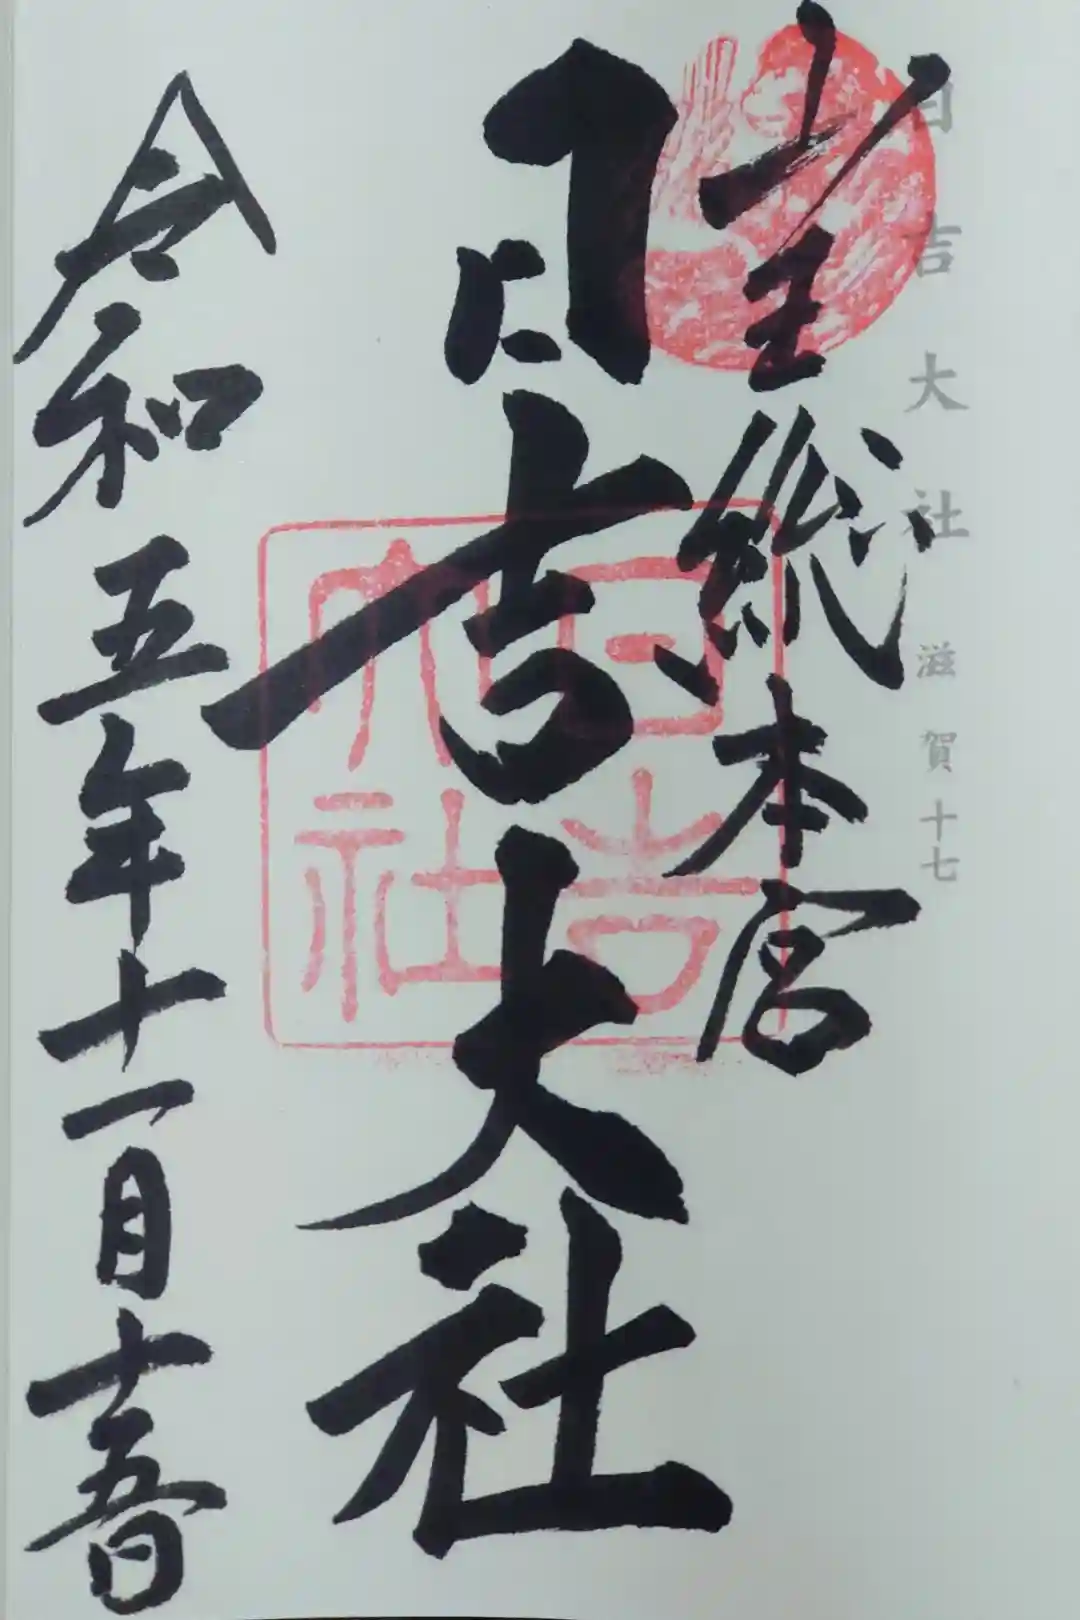 日吉大社 滋賀十七
山王総本宮
日吉大社
日吉
大社
令和五年十一月十五日